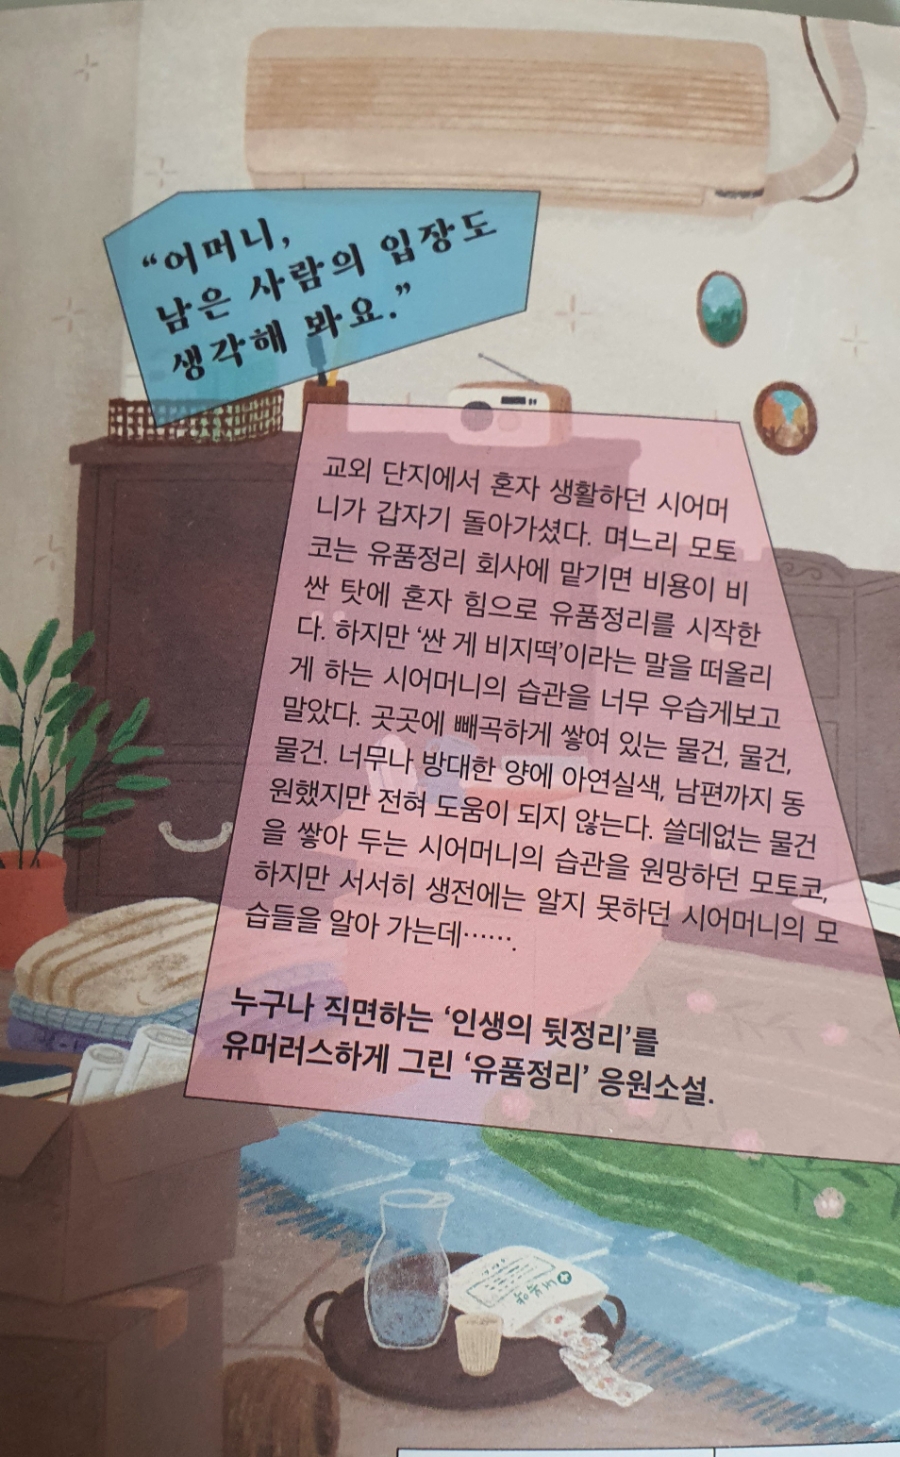 “어머니,
남은 사람의 입장도
생각해 봐요.”
교외 단지에서 혼자 생활하던 시어머
니가 갑자기 돌아가셨다. 며느리 모토
코는 유품정리 회사에 맡기면 비용이 비
싼 탓에 혼자 힘으로 유품정리를 시작한
다. 하지만 ‘싼 게 비지떡’이라는 말을 떠올리
게 하는 시어머니의 습관을 너무 우습게보고
말았다. 곳곳에 빼곡하게 쌓여 있는 물건, 물건,
물건. 너무나 방대한 양에 아연실색, 남편까지 동
원했지만 전혀 도움이 되지 않는다. 쓸데없는 물건
을 쌓아 두는 시어머니의 습관을 원망하던 모토코,
하지만 서서히 생전에는 알지 못하던 시어머니의 모
습들을 알아 가는데…….
누구나 직면하는 ‘인생의 뒷정리’를
유머러스하게 그린 ‘유품정리’ 응원소설.